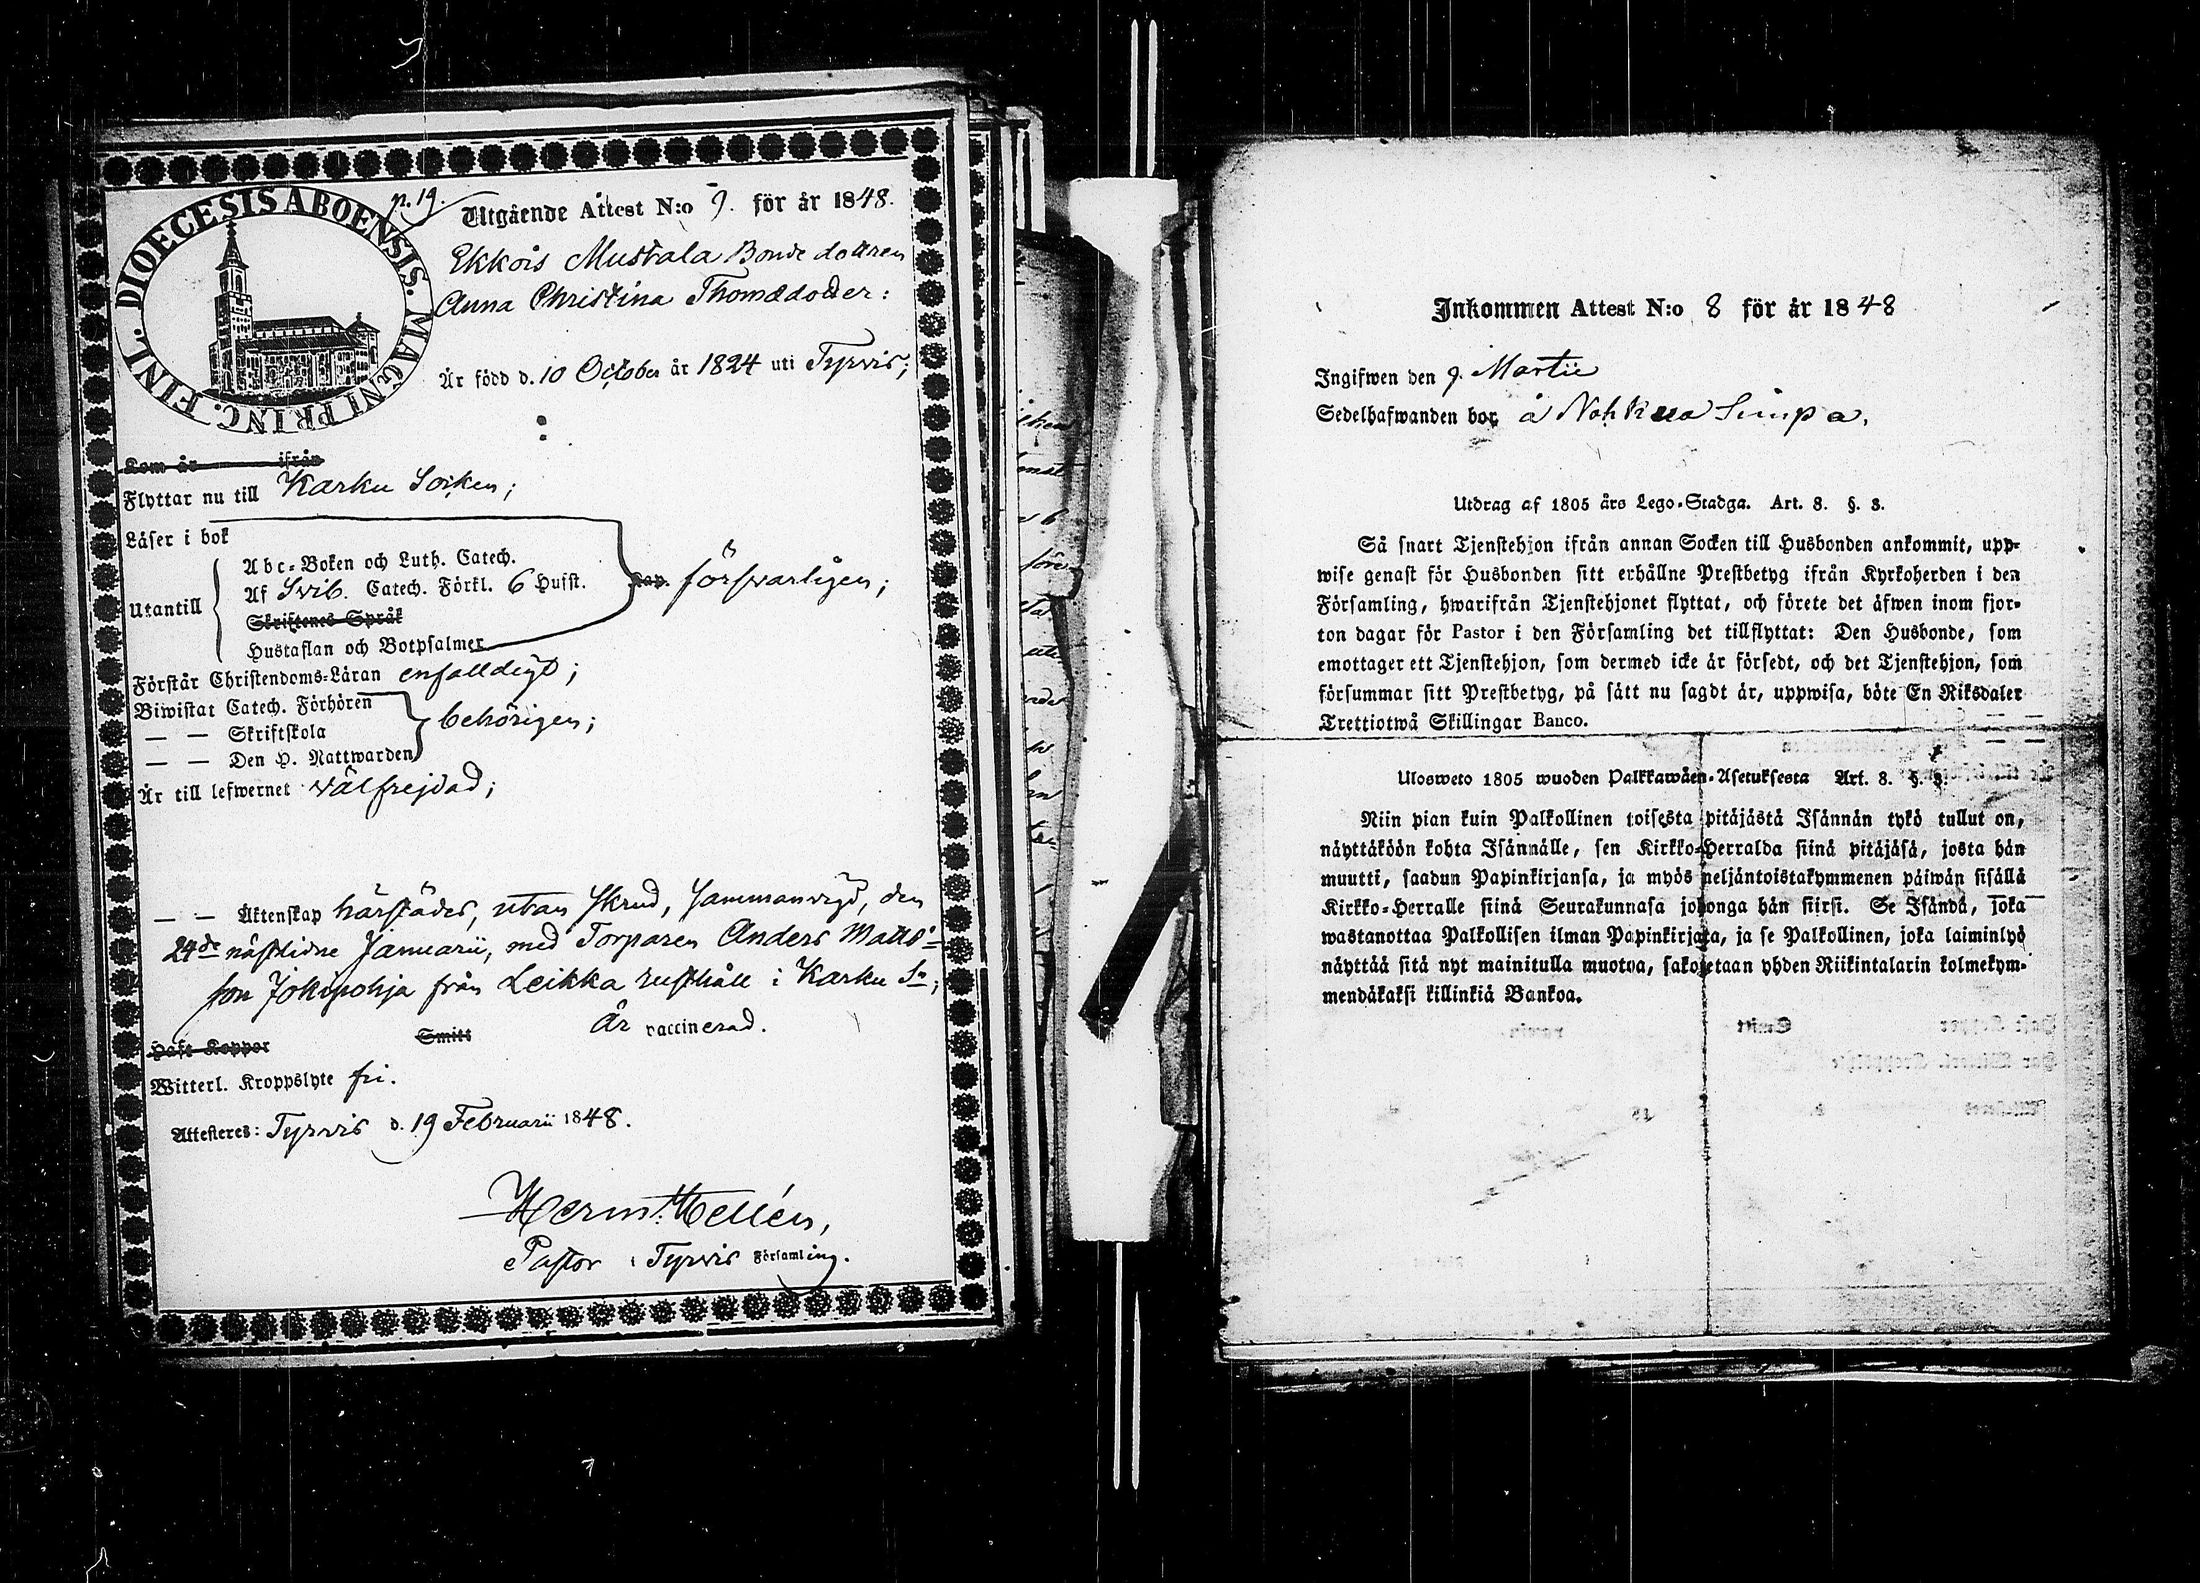 DIOECESIS ABOENSIS. MAGNI PRINC. FINL.
p. 19.
Utgående Attest N:o 9. för år 1848.
Ekkois Mustala Bonde dottren
Anna Christina Thomædotter:
Är född d. 10 October år 1824 uti Tyrvis;
Kom år ifrån
Flyttar nu till Karku Socken;
Läser i bok
Utantill
Abc-Boken och Luth. Catech.
Af Svib. Catech. Förkl. 6 Husst.
Skriftenes Språk
Hustaflan och Botpsalmer
Kap. försvarligen;
Förstår Christendoms-Läran enfalldigt;
Biwistat Catech. Förhören
— — Skriftskola
— — Den H. Nattwarden
behörigen;
Är till lefwernet välfrejdad;
— — Äktenskap härstädes, utan Skrud, sammanvigd, den
24de nästlidne Januarii, med Torparen Anders Matts-
son Jokipohja från Leikka rusthåll i Karku Sn;
Haft Koppor Smitt Är vaccinerad.
Witterl. Kroppslyte fri.
Attesteres: Tyrvis d. 19 Februarii 1848.
Herm. Hellén,
Pastor i Tyrvis Församling.
Inkommen Attest N:o 8 för år 1848
Ingifwen den 9. Martii
Sedelhafwanden bor å Nohkua Simpa.
Utdrag af 1805 års Lego-Stadga. Art. 8. §. 3.
Så snart Tjenstehjon ifrån annan Socken till Husbonden ankommit, upp-
wise genast för Husbonden sitt erhållne Prestbetyg ifrån Kyrkoherden i den
Församling, hwarifrån Tjenstehjonet flyttat, och förete det äfwen inom fjor-
ton dagar för Pastor i den Församling det tillflyttat: Den Husbonde, som
emottager ett Tjenstehjon, som dermed icke är försedt, och det Tjenstehjon, som
försummar sitt Prestbetyg, på sätt nu sagdt är, uppwisa, böte En Riksdaler
Trettiotwå Skillingar Banco.
Ulosweto 1805 wuoden Palkkawäen-Asetuksesta Art. 8. §. 3.
Niin pian kuin Palkollinen toisesta pitäjästä Isännän tykö tullut on,
näyttäköön kohta Isännälle, sen Kirkko-Herralda siinä pitäjäsä, josta hän
muutti, saadun Papinkirjansa, ja myös neljäntoistakymmenen päiwän sisällä
Kirkko-Herralle siinä Seurakunnasa johonga hän siirsi. Se Isändä, joka
wastanottaa Palkollisen ilman Papinkirjata, ja se Palkollinen, joka laiminlyö
näyttää sitä nyt mainitulla muotoa, sakotetaan yhden Riikintalarin kolmekym-
mendäkaksi killinkiä Bankoa.